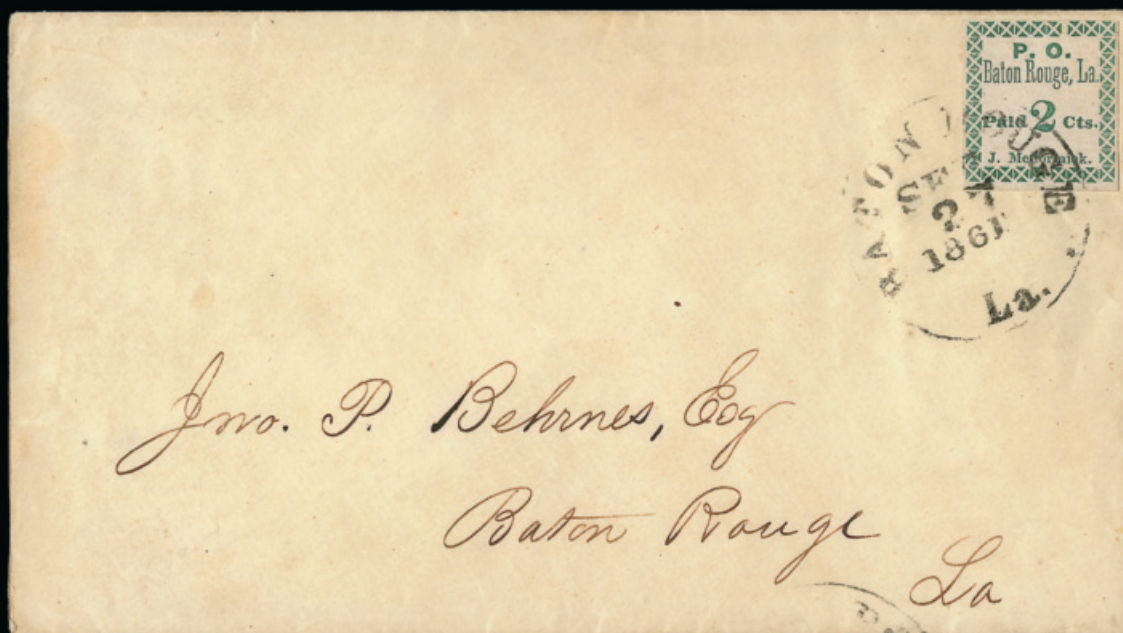 P. O.
Baton Rouge, La.
Paid 2 Cts.
J. McCormick.
BATON ROUGE
1861
La.
Jno. P. Behrnes, Esq
Baton Rouge
La